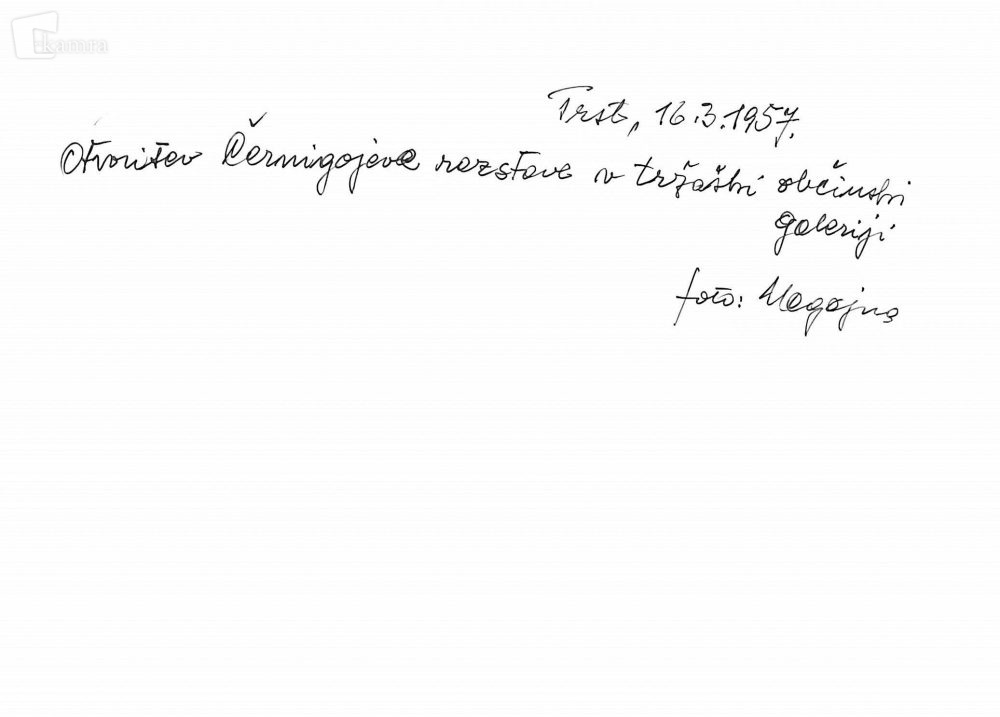 kamra
Trst, 16.3.1957.
Otvoritev Černigojeve razstave v tržaški občinski
galeriji
foto: Magajna